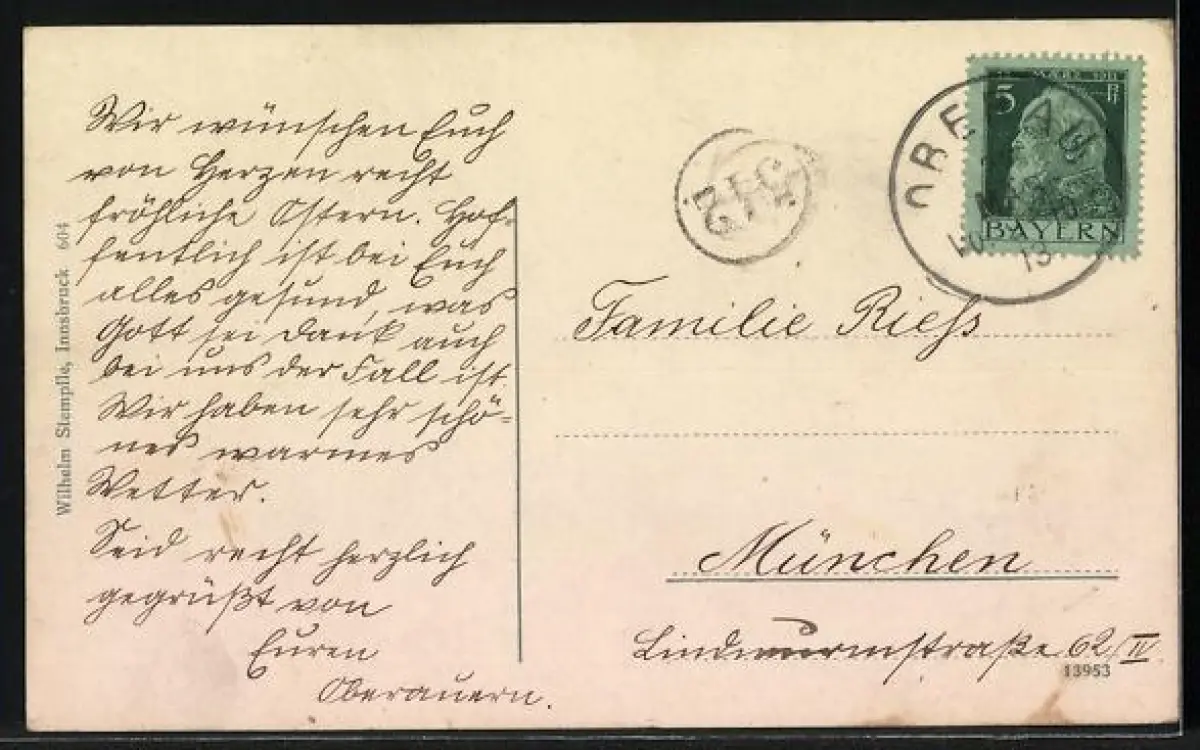 Wir wünschen Euch
von Herzen recht
fröhliche Ostern. Hof-
fentlich ist bei Euch
alles gesund, was
Gott sei Dank auch
bei uns der Fall ist.
Wir haben sehr schö=
nes warmes
Wetter.
Seid recht herzlich
gegrüßt von
Euren
Oberauern.
Wilhelm Stempfle, Innsbruck 604
5
MÄRZ 1911
BAYERN
OBERAU
13
Familie Riess
München
Lindwurmstraße 62/IV.
13953